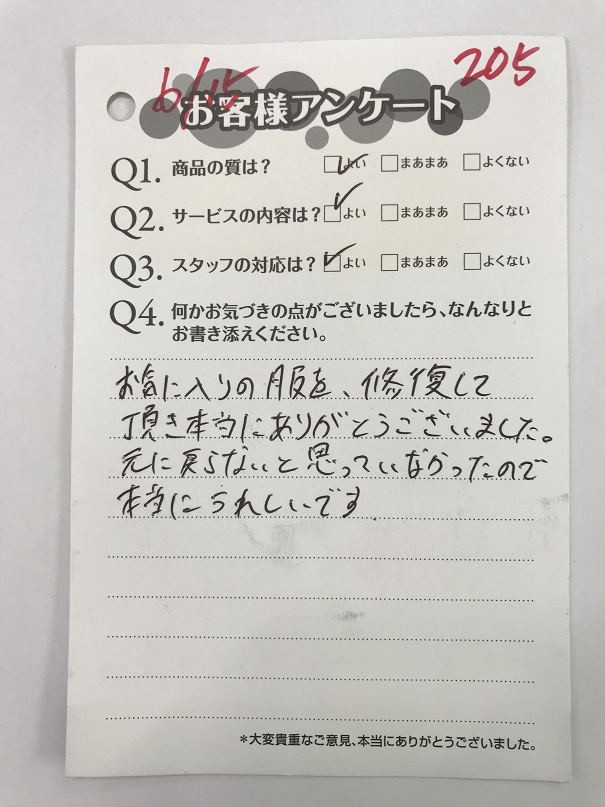 6/15
205
お客様アンケート
Q1. 商品の質は? □よい □まあまあ □よくない
Q2. サービスの内容は? □よい □まあまあ □よくない
Q3. スタッフの対応は? □よい □まあまあ □よくない
Q4. 何かお気づきの点がございましたら、なんなりと
お書き添えください。
お気に入りの服を、修復して
頂き本当にありがとうございました。
元に戻らないと思っていなかったので
本当にうれしいです
*大変貴重なご意見、本当にありがとうございました。